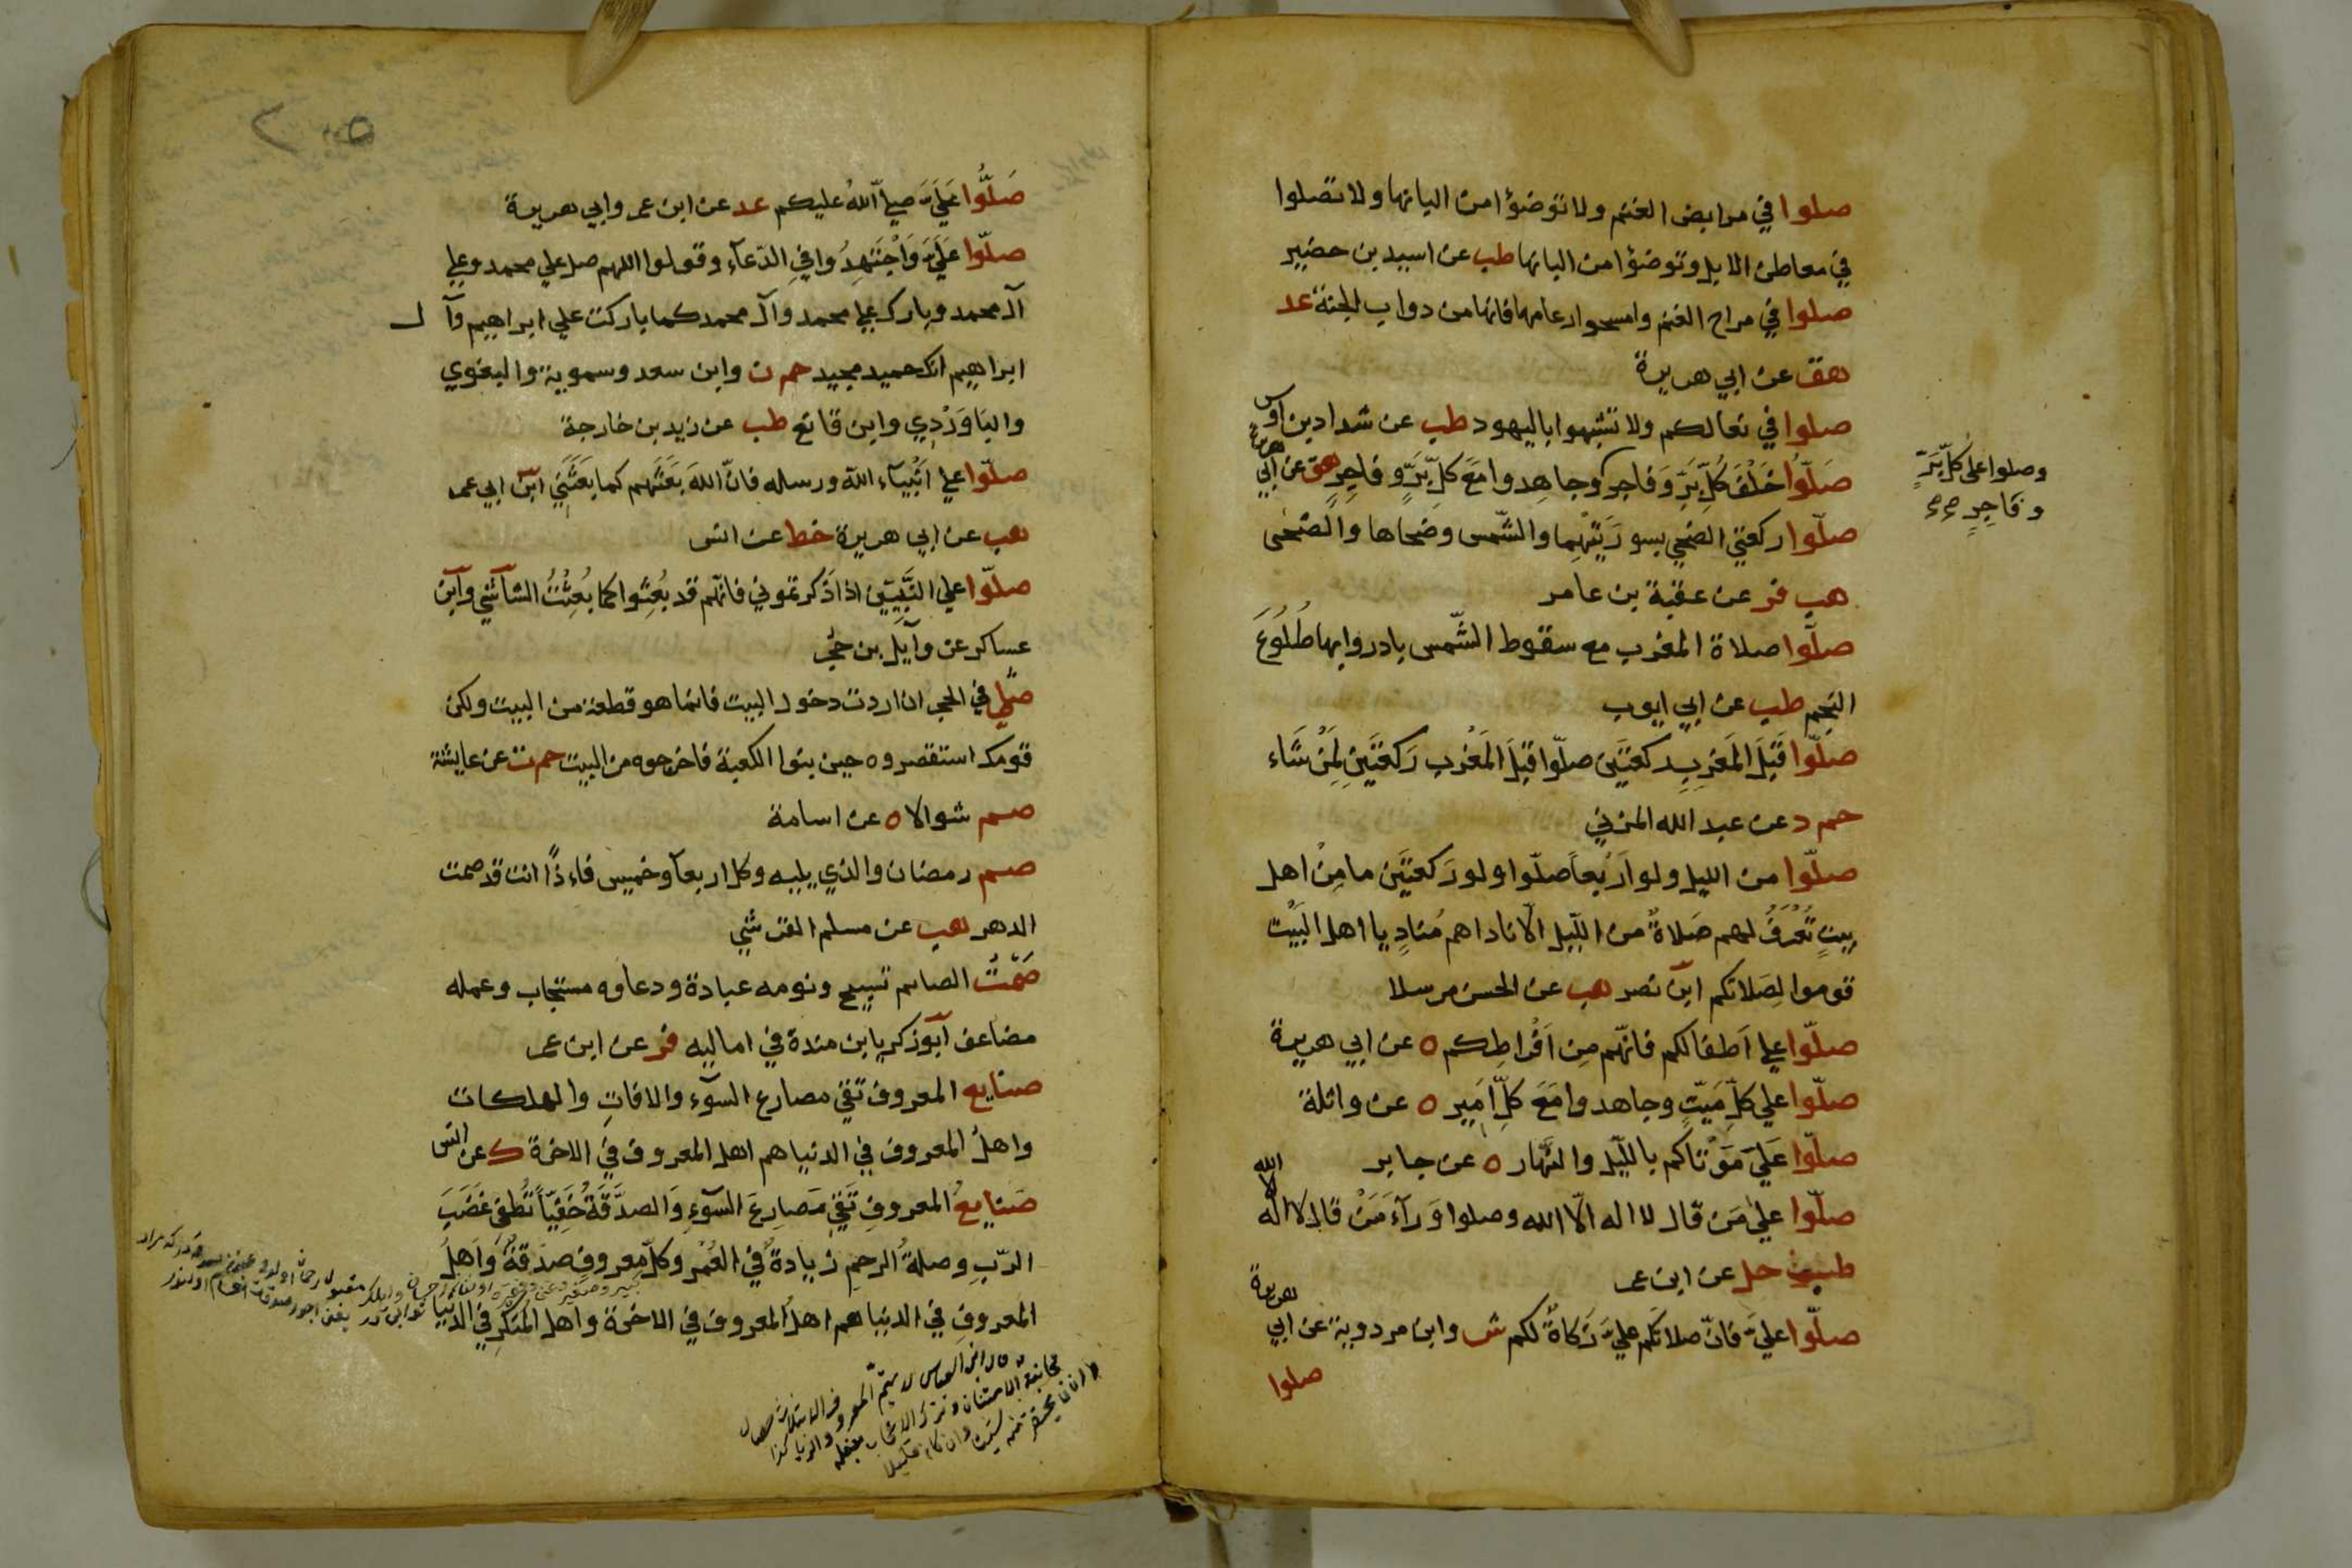 صلوا في مرابض الغنم ولا توضؤا من البانها ولا تصلوا
في معاطن الابل وتوضؤا من البانها طب عن اسيد بن حضير
صلوا في مراح الغنم وامسحوا رعامها فانها من دواب الجنة عد
هق عن ابي هريرة
صلوا في نعالكم ولا تشبهوا باليهود طب عن شداد بن اوس
صَلّوا خَلْفَ كُلّ بَرٍّ وَفاجر وجاهِدوا مَعَ كلِّ بَرٍّ وفاجِرٍ هق عن ابي هريرة
وصلوا على كلّ بَرٍّ
وفاجِرٍ
صلّوا ركعتي الضحي بسورَتَيْهِما والشّمس وضحاها والضحى
هب فر عن عقبة بن عامر
صلّوا صلاة المغرب مع سقوط الشّمس بادروا بها طُلُوعَ
النجم طب عن ابي ايوب
صلّوا قَبلَ المَغرِبِ ركعتَين صلّوا قبلَ المَغْرب رَكعتَينِ لِمَنْ شَاء
حم د عن عبد الله المزني
صلّوا من الليل ولو اَرْبعاً صلّوا ولو رَكعتَين ما مِنْ اهل
بيتٍ تُعْرَفُ لهم صَلاةٌ من اللّيل الّا ناداهم مُنادٍ يا اهل البَيْت
قوموا لِصَلاتكم ابن نصر هب عن الحسن مرسلا
صلّوا علي اَطفالكم فانّهم مِن اَفْراطِكم ه عن ابي هريرة
صلّوا علي كلِّ مَيّتٍ وجاهدوا مَعَ كلِّ اَمِيرٍ ه عن واثلة
صلّوا عَليَ مَوْتاكم باللّيل والنَّهار ه عن جابر
صلّوا عليٰ مَن قال لا اله الّا الله وصلوا وَرآءَ مَنْ قال لا اله الا الله
طب حل عن ابن عمر
صلّوا عليَّ فانّ صلاتكم عليَّ زَكاةٌ لكم ش وابن مردوية عن ابي هريرة
صلوا
صَلُّوا عَلَيَّ صلي اللّهُ عليكم عد عن ابن عمر وابي هريرة
صلّوا عَلَيَّ وَاجْتَهِدُوا فِي الدّعآء وقولوا اللهم صل علي محمد وعلي
آل محمد وبارك علي محمد وآل محمد كما باركت علي ابراهيم وآل
ابراهيم انك حميد مجيد حم ن وابن سعد وسموية والبغوي
والباوَرْدِي وابن قانع طب عن زيد بن خارجة
صلّوا علي اَنْبِيآء اللّه ورسله فانّ اللهَ بَعَثَهم كما بَعَثَنِي ابن ابي عمر
هب عن ابي هريرة خط عن انس
صلّوا علي النَّبِيّين اذا ذكرتموني فانّهم قد بُعِثوا كما بُعِثْتُ الشاشي وابن
عساكر عن وآيل بن حجر
صلّي في الحجر ان اردت دخول البيت فانما هو قطعة من البيت ولكن
قومك استقصروه حين بنوا الكعبة فاخرجوه من البيت حم ت عن عايشة
صم شوالا ه عن اسامة
صم رمضان والذي يليه وكل اربعآ وخميس فاِذًا انت قد صمت
الدهر هب عن مسلم القرشي
صَمْتُ الصايم تسبيح ونومه عبادة ودعاوه مستجاب وعمله
مضاعف اَبو زكريا بن مندة في اماليه فر عن ابن عمر
صنايع المعروف تقي مصارع السّوٓء والافاتِ والهلكات
واهلُ المعروف في الدنيا هم اهل المعروف في الاخرة ك عن انس
صَنايعُ المعروفِ تَقِي مَصارِعَ السّوٓءِ وَالصدَقَةُ خَفِيّاً تُطفِئ غَضَبَ
الرّبِ وصلةُ الرحِم زيادةٌ في العُمْر وكلّ معروفٍ صدقةٌ وَاهلُ
المعروفِ في الدنيا هم اهلُ المعروف في الاخرة واهل المُنكَرِ في الدنيا